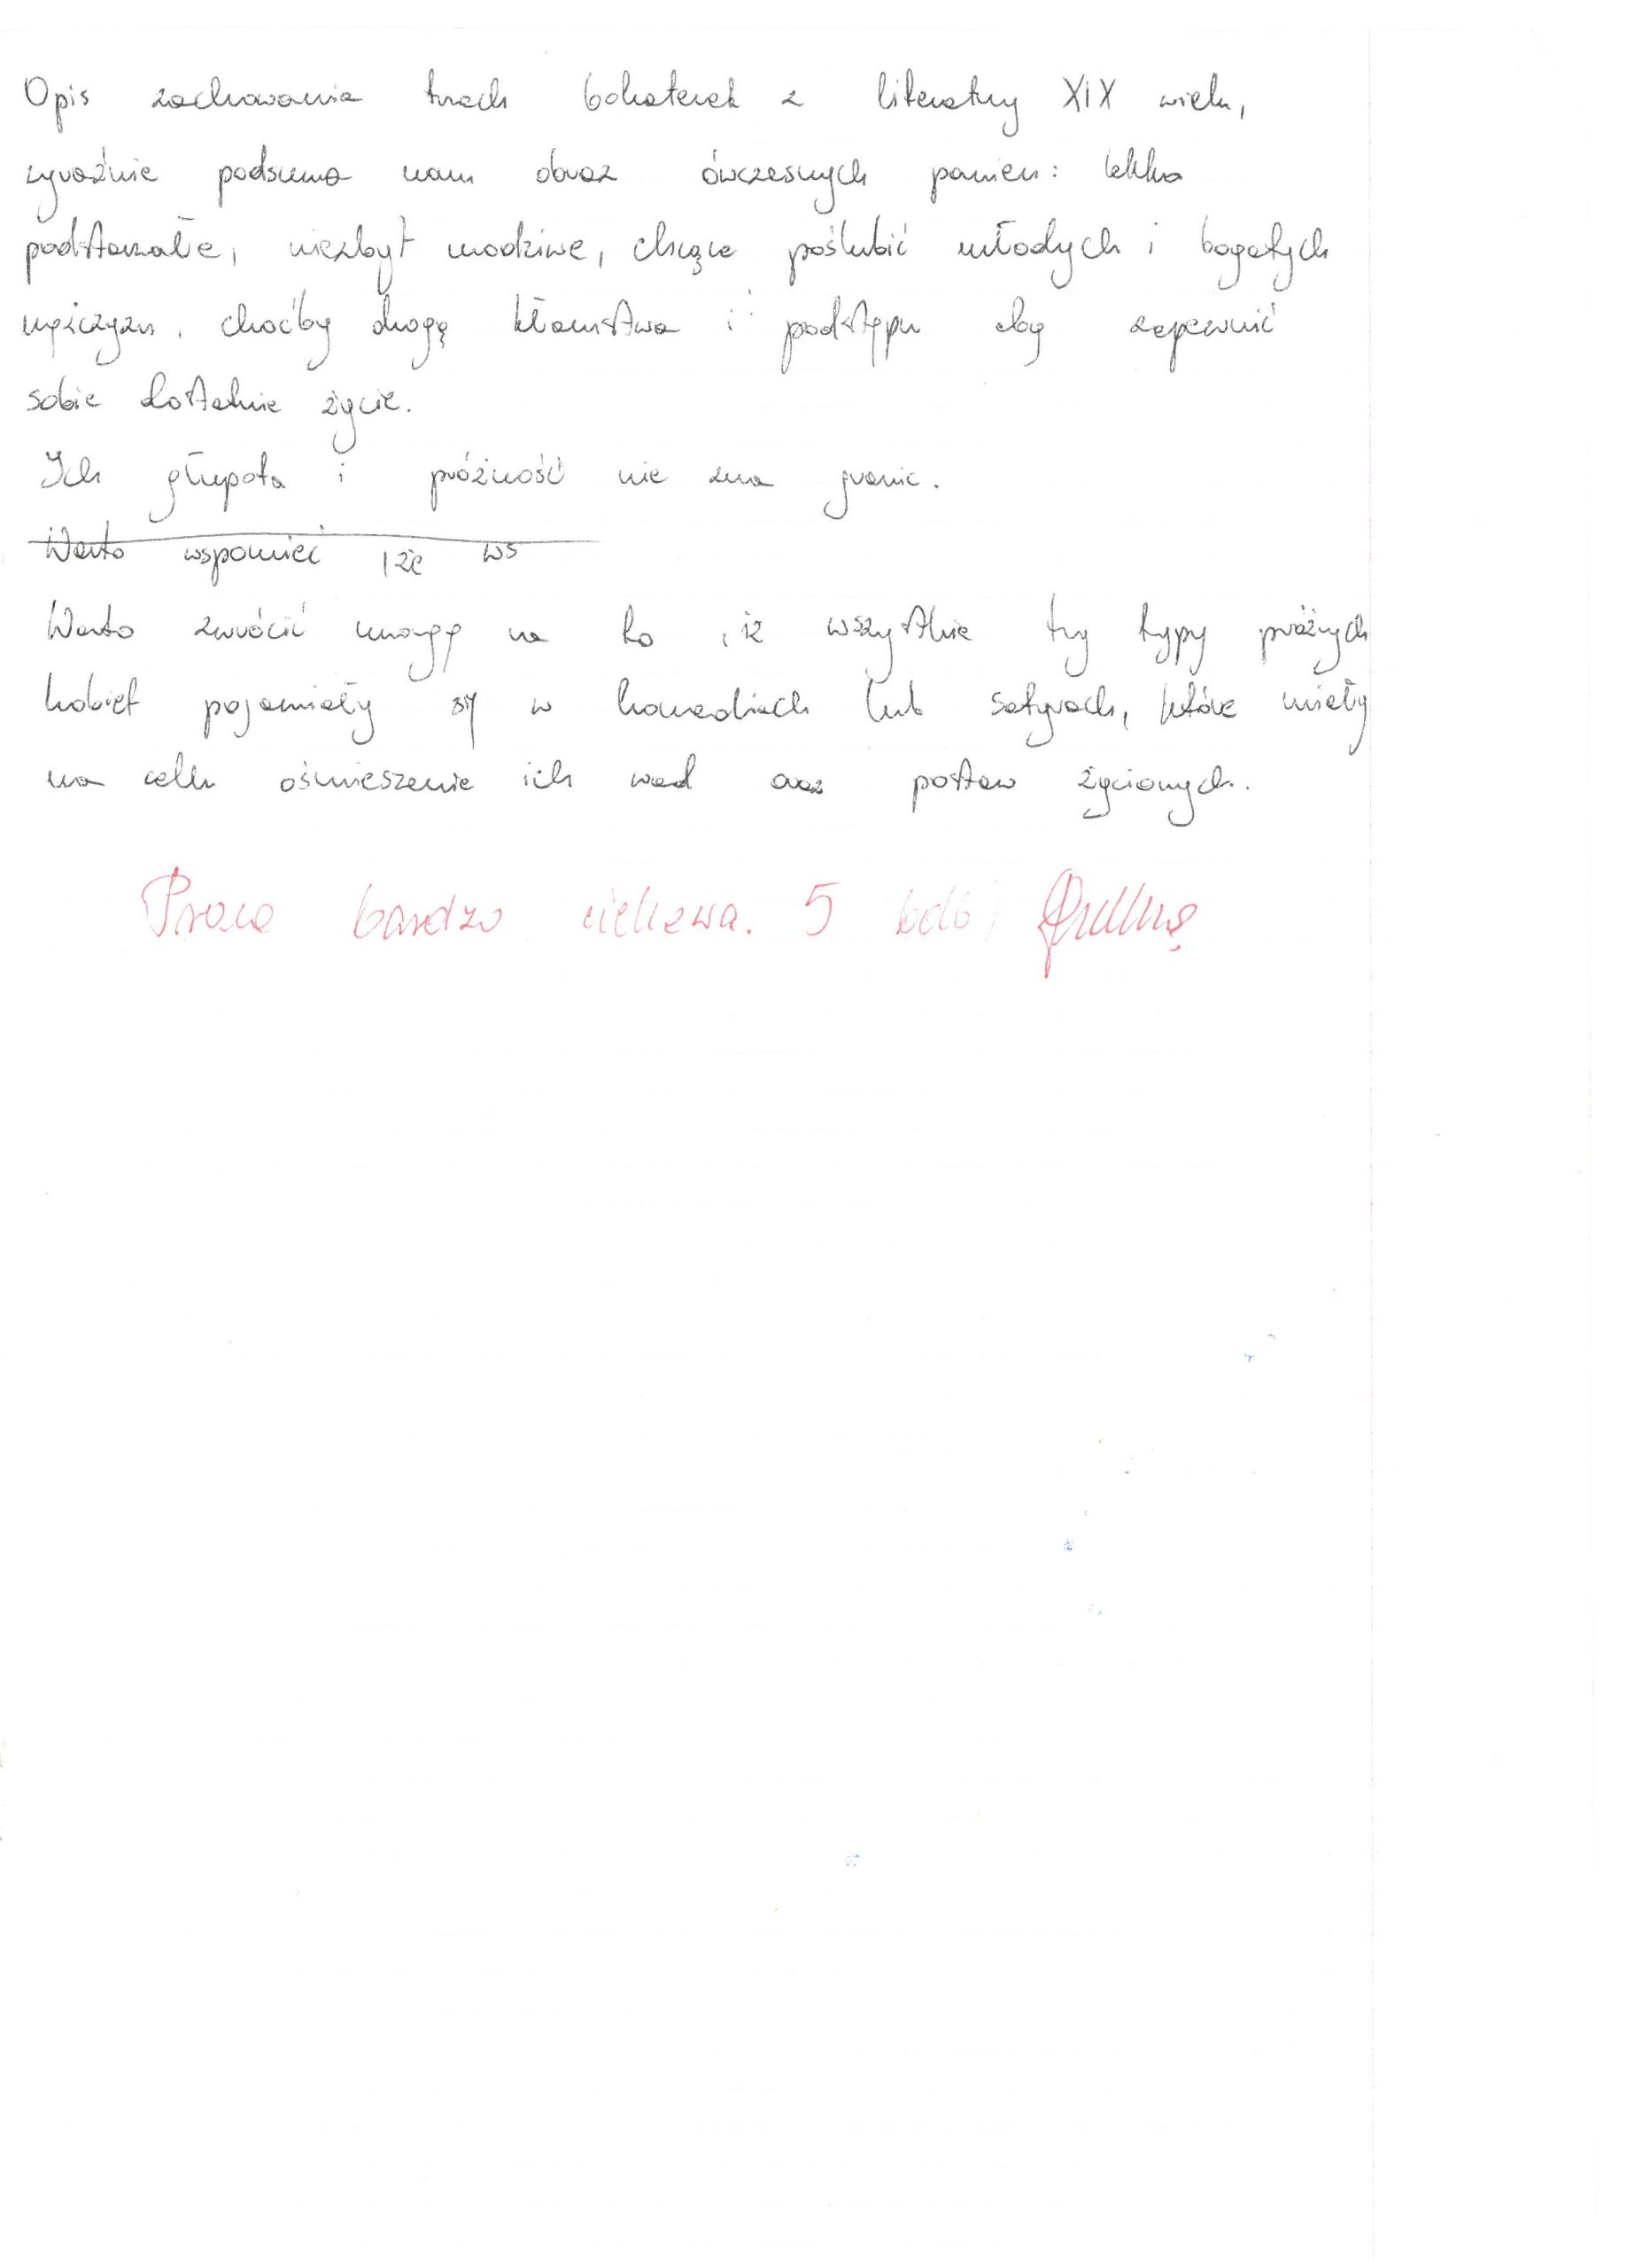 Opis zachowania trzech bohaterek z literatury XIX wieku,
wyraźnie podsuma nam obraz ówczesnych panien: lekko
podstarzałe, niezbyt urodziwe, chcące poślubić młodych i bogatych
mężczyzn, choćby drogą kłamstwa i podstępu aby zapewnić
sobie dostatnie życie.
Ich głupota i próżność nie zna granic.
Warto wspomieć, że ws
Warto zwrócić uwagę na to, iż wszystkie trzy typy próżnych
kobiet pojawiały się w komediach lub satyrach, które miały
na celu ośmieszenie ich wad oraz postaw życiowych.
Praca bardzo ciekawa. 5 bdb